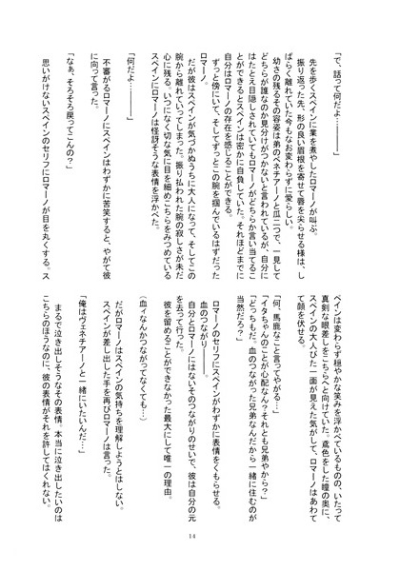 「で、話って何だよ――――」
先を歩くスペインに業を煮やしたロマーノが叫ぶ。
振り返った先、形の良い眉根を寄せて唇を尖らせる様は、し
ばらく離れていた今もなお変わらずに愛らしい。
幼さの残るその容姿は弟のベネチアーノと瓜二つで、一見して
どちらが誰なのか見分けがつかないと言われているが、自分に
はたとえ目隠しされていてもロマーノがどちらか言い当てるこ
とができるとスペインは密かに自負していた。それほどまでに
自分はロマーノの存在を感じることができる。
ロマーノ。
ずっと傍にいて、そしてずっとこの腕を掴んでいるはずだった
だが彼はスペインが気づかぬうちに大人になって、そしてこの
腕から離れていってしまった。振り払われた腕の寂しさが未だ
心に残る。いつになく切な気に目を細めこちらをみつめている
スペインにロマーノは怪訝そうな表情を浮かべた。
「何だよ………」
不審がるロマーノにスペインはわずかに苦笑すると、やがて彼
に向って言った。
「なぁ、そろそろ戻ってこんの？」
思いがけないスペインのセリフにロマーノが目を丸くする。ス
ペインは変わらず穏やかな笑みを浮かべているものの、いたって
真剣な眼差しをこちらへと向けていた。鳶色をした瞳の奥に、
スペインの大人びた一面が見えた気がして、ロマーノはあわて
て顔を伏せる。
「何、馬鹿なこと言ってやがる…」
「イタちゃんのことが心配なん？それとも兄弟やから？」
「どっちもだ。血のつながった兄弟なんだから一緒に住むのが
当然だろ？」
ロマーノのセリフにスペインがわずかに表情をくもらせる。
血のつながり――――。
自分とロマーノにはないそのつながりのせいで、彼は自分の元
を去って行った。
彼を留めることができなかった最大にして唯一の理由。
（血ィなんかつながってなくても…）
だがロマーノはスペインの気持ちを理解しようとはしない。
スペインが差し出した手を再びロマーノは言った。
「俺はヴェネチアーノと一緒にいたいんだ…」
まるで泣き出しそうなその表情。本当に泣き出したいのは
こちらのほうなのに、彼の表情がそれを許してはくれない。
14